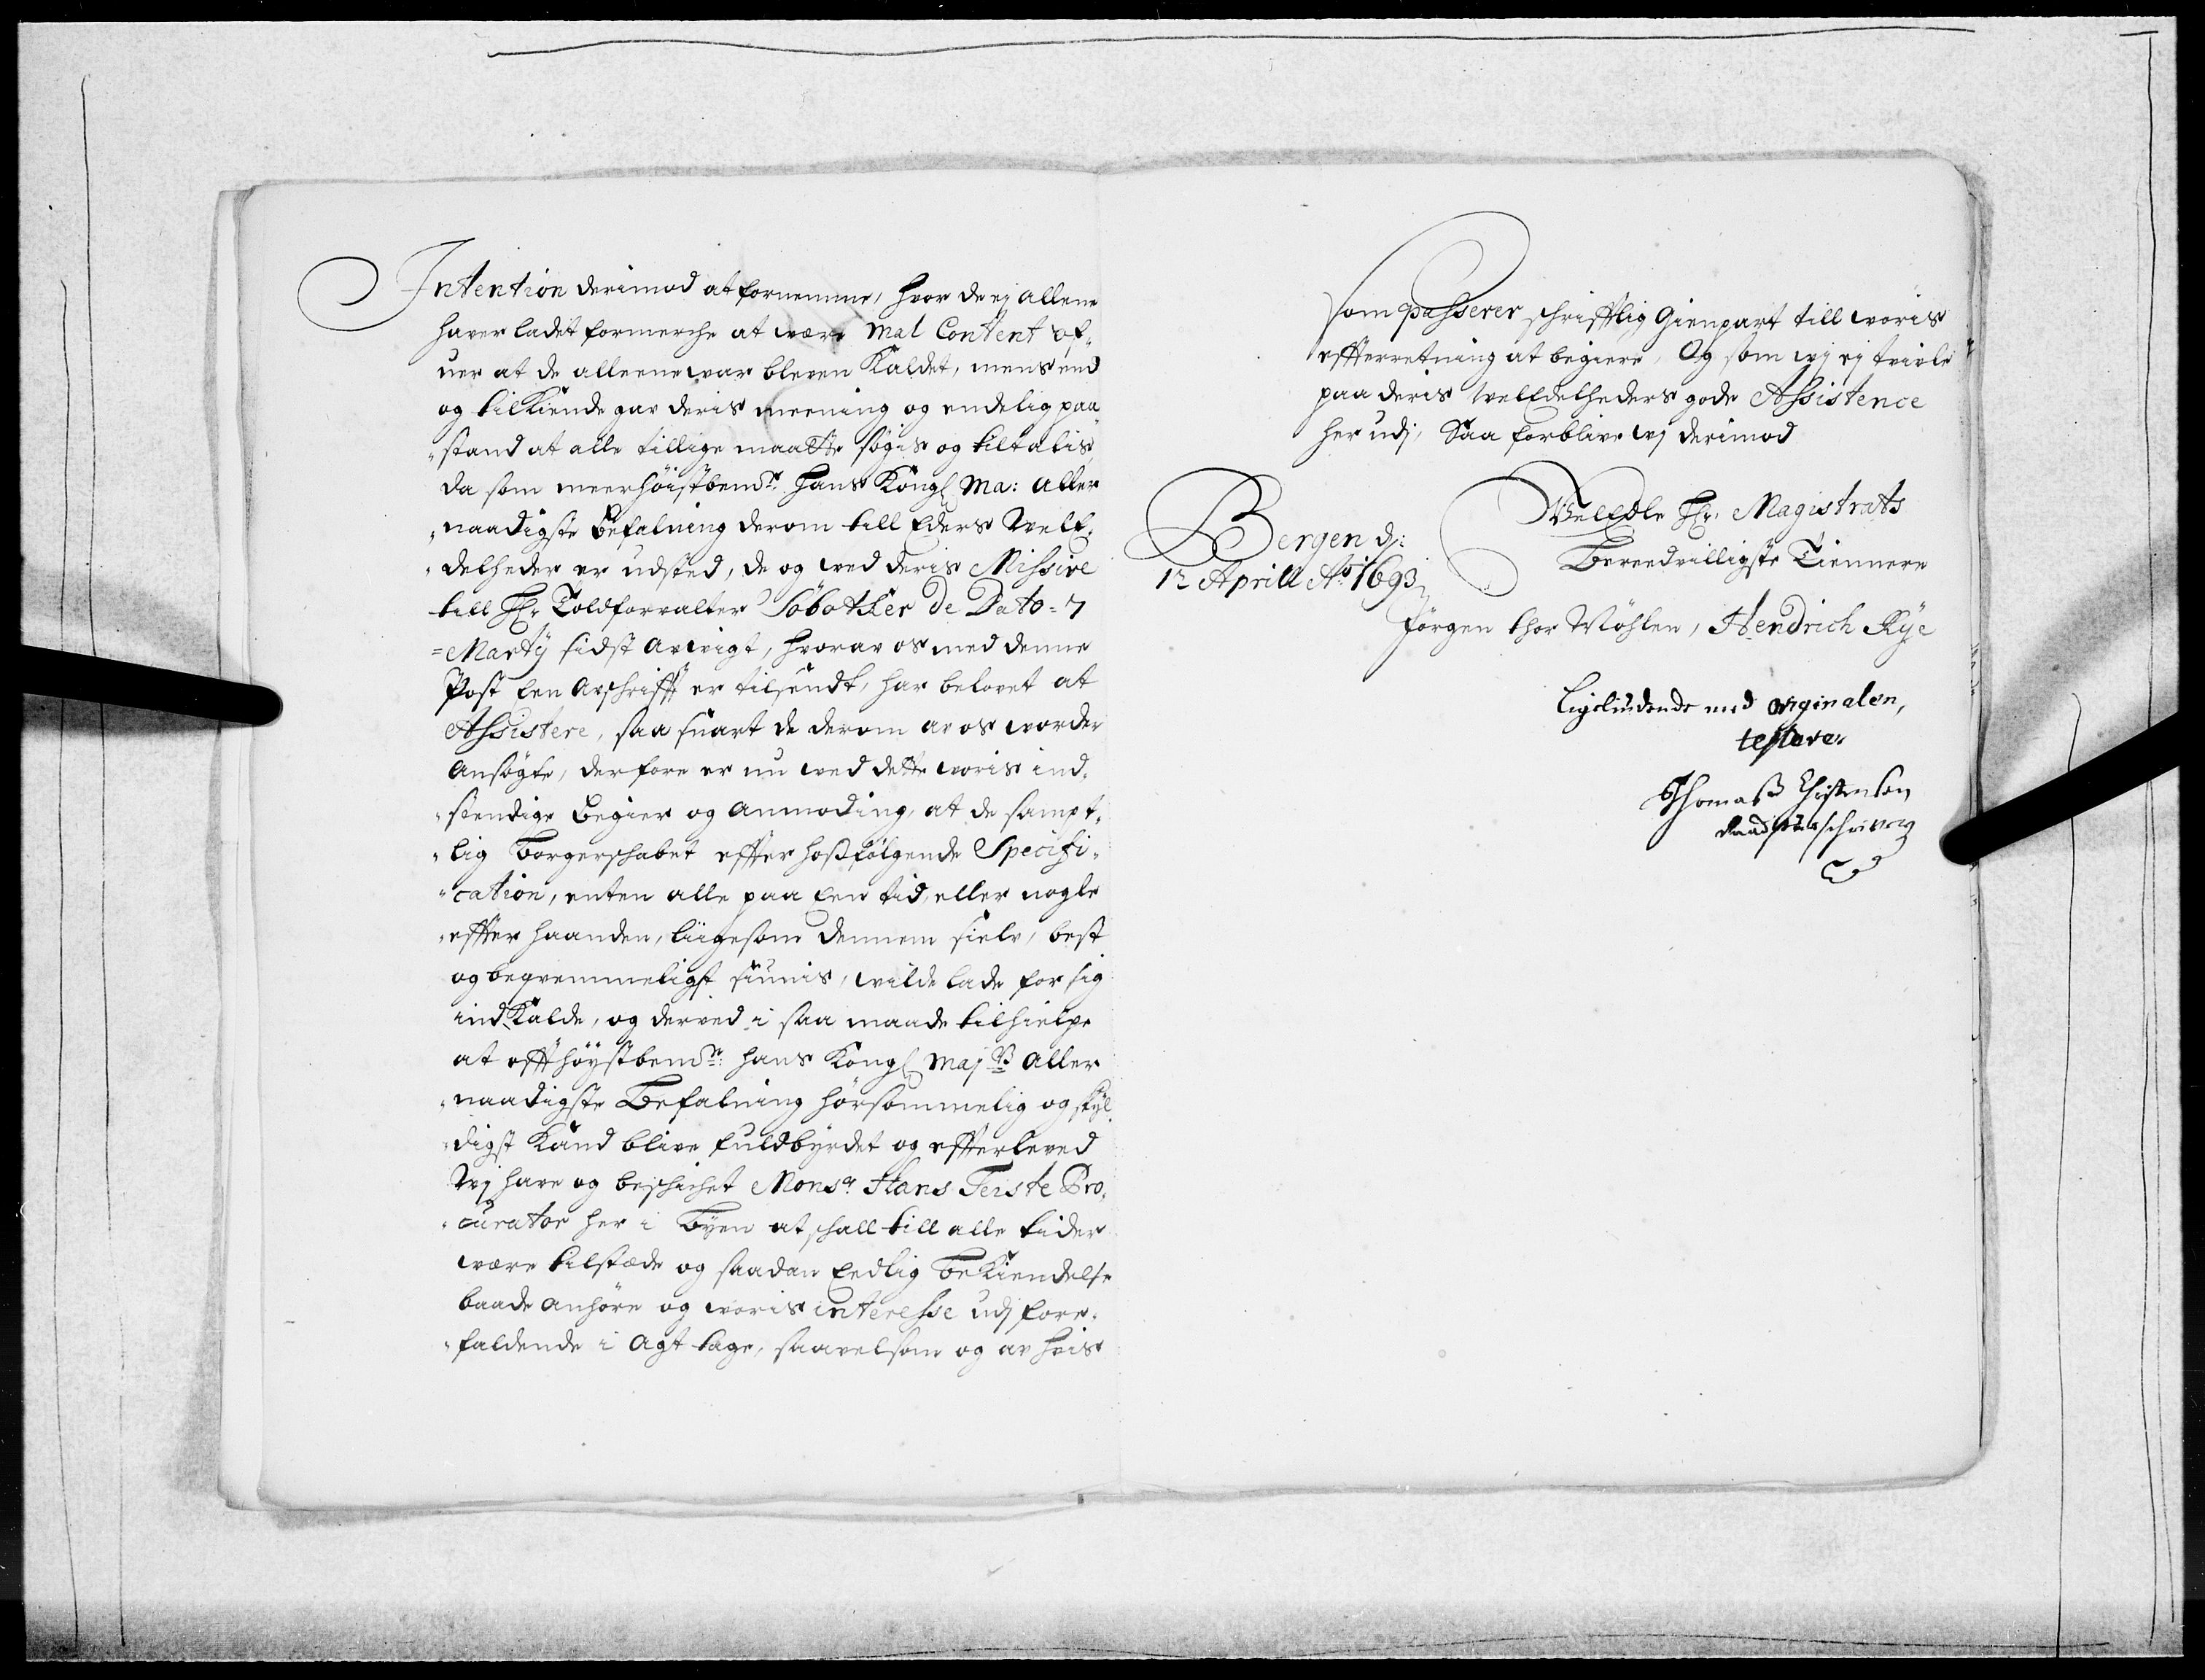 Intention derimod at fornemme, hvor de ej allene
haver ladet formerche at være Mal Content of¬
uer at de alleene var bleven Kaldet, mens end
og tilkiende gav deris meening og endelig paa
„stand at alle tillige maatte søgis og tiltalis,
da som meerhøistbemte: Hans Kongl Ma: aller
„naadigste Befalning derom till Eders WelE¬
„delheder er udsted, de og ved deris Missive
till Hr. Toldforvalter Søbøtker de Dato=7
=Martÿ sidst avvigt, hvorav os med denne
Post Een Avschrifft er tilsendt, har belovet at
Assistere, saa snart de derom av os vorder
Ansøgte, derfore er nu ved dette voris ind¬
„stendige Begier og Anmoding, at de sampt¬
„lig Borgerschabet effter hosfølgende Specifi¬
„cation, enten alle paa Een tid, eller nogle
„effter haanden, liigesom dennem sielv, best
og beqvemmeligst siunis, wilde lade for sig
indkalde, og derved i saa maade tilhielpe
at offthøystbemte: hans Kongl Majts aller
„naadigste Befalning hørsommelig og skyl
„digst Kand blive fuldbyrdet og effterleved
Wj have og beschichet Monsr. Hans Teiste Pro¬
„curator her i Byen at schall till alle tider
være tilstæde og saadan Eedlig bekiendelse
baade anhøre og voris interesse udj fore¬
„faldende i Agt tage, saavelsom og av hvis
som passerer schrifftlig Gienpart till voris
effterretning at begiere, Og som wj ej tvivle
paa deris WelEdelheders gode Assistence
her udj, Saa forblive wj derimod
WelEdle Hr. Magistrats
Bereedvilligste Tiennere
Bergen d:
12 Aprill Ao 1693
Jørgen thor Møhlen, Hendrich Rye
Ligeliudende med orginalen,
testerer
Thomas Christensen